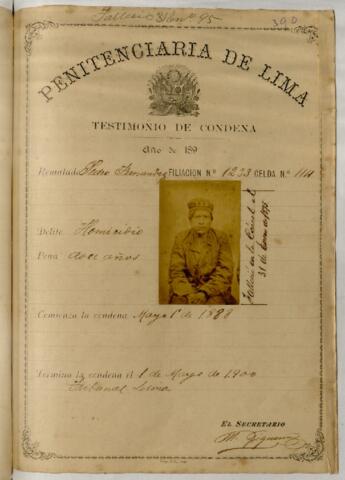 Falleció 31 En° 95
390
PENITENCIARIA DE LIMA
TESTIMONIO DE CONDENA
Año de 189
Rematado Pedro Fernandez FILIACION N.° 1233 CELDA N.° 114
Delito Homicidio
Pena doce años
Falleció en la Cárcel el
31 de Enero de 1895
Comienza la condena Mayo 1° de 1888
Termina la condena el 1 de Mayo de 1900
Tribunal Lima
EL SECRETARIO